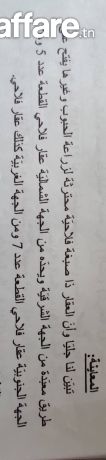 affare.tn
المعاينة:
تبين لنا جليا وأن العقار ذا صبغة فلاحية محترثة لزراعة الحبوب وغيرها يفتح
طريق معبدة من الجهة الشرقية ويحده من الجهة الشمالية عقار فلاحي القطعة عدد 5
الجهة الجنوبية عقار فلاحي القطعة عدد 7 ومن الجهة الغربية كذلك عقار فلاحي.